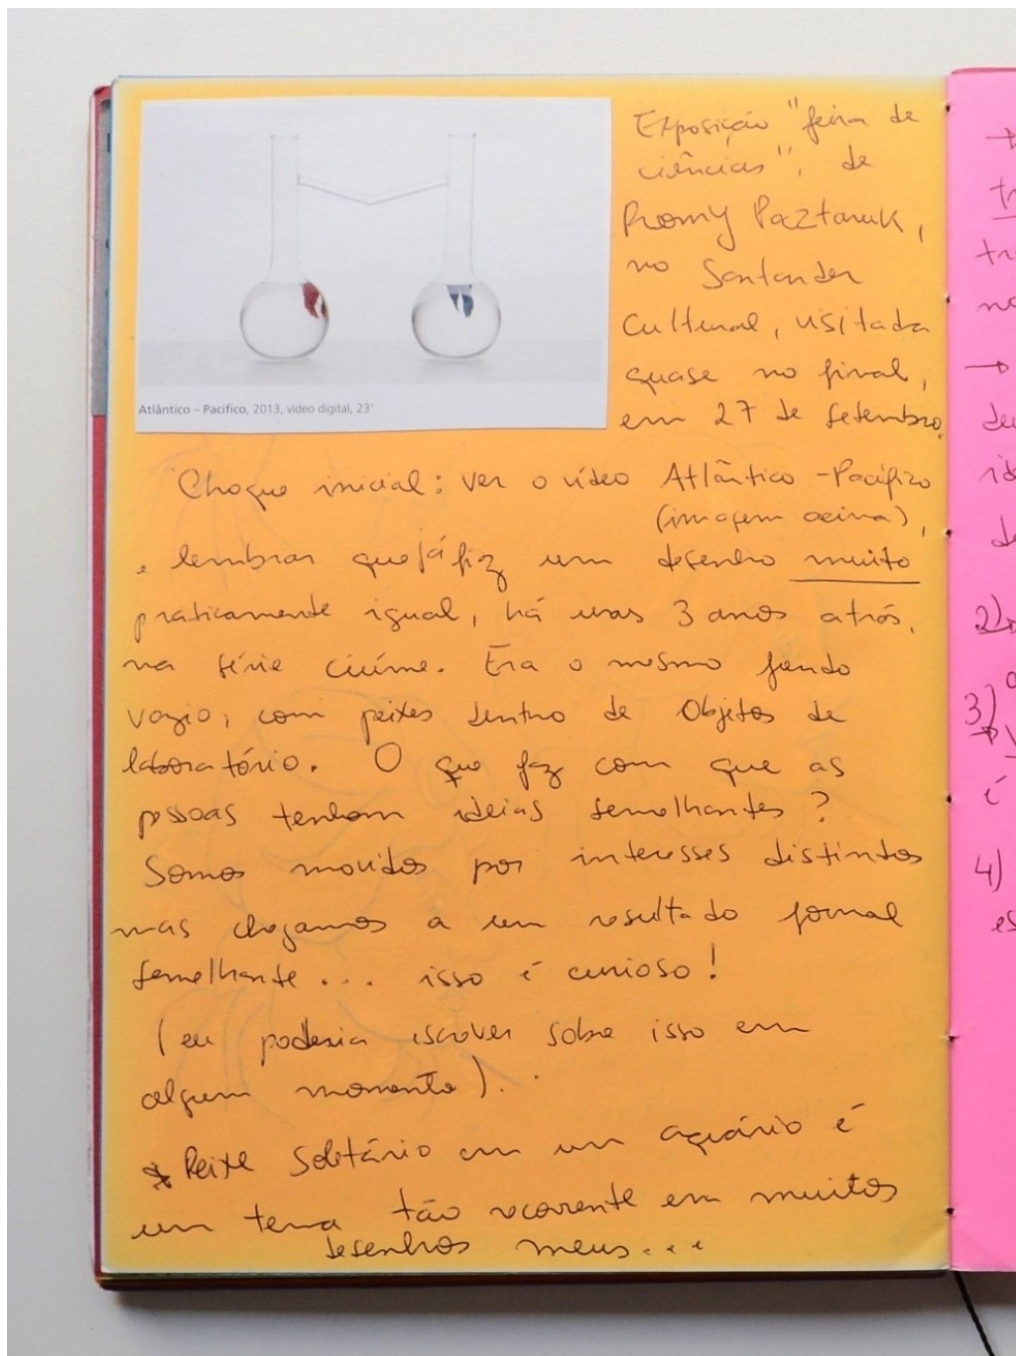 Exposição "feira de
ciências", de
Romy Poztaruk,
no Santander
Cultural, visitada
quase no final,
em 27 de setembro.
Atlântico – Pacífico, 2013, vídeo digital, 23'
Choque inicial: ver o vídeo Atlântico - Pacífico
(imagem acima),
e lembrar que já fiz um desenho muito
praticamente igual, há unas 3 anos atrás,
na série ciúme. Era o mesmo fundo
vazio, com peixes dentro de objetos de
laboratório. O que faz com que as
pessoas tenham ideias semelhantes?
Somos movidos por interesses distintos
mas chegamos a um resultado formal
semelhante... isso é curioso!
(eu poderia escrever sobre isso em
algum momento).
* Peixe solitário em um aquário é
um tema tão recorrente em muitos
desenhos meus...
no
2)
3)
é
4)
es